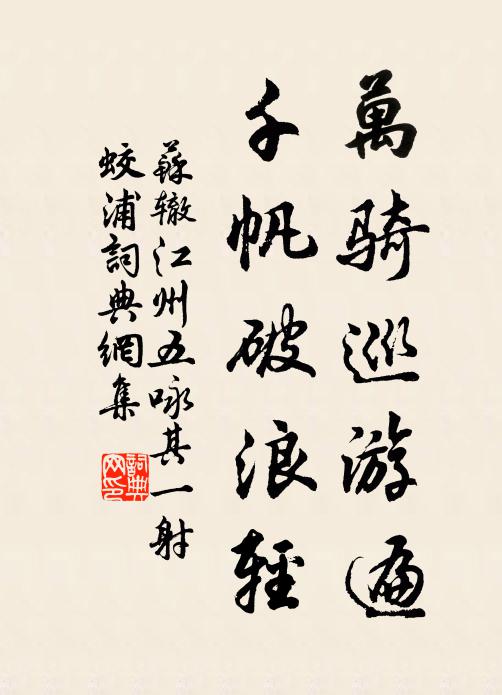 萬騎巡游遍
千帆破浪輕
蘇轍江州五咏其一射
蛟浦詞典網集
詞典
网印